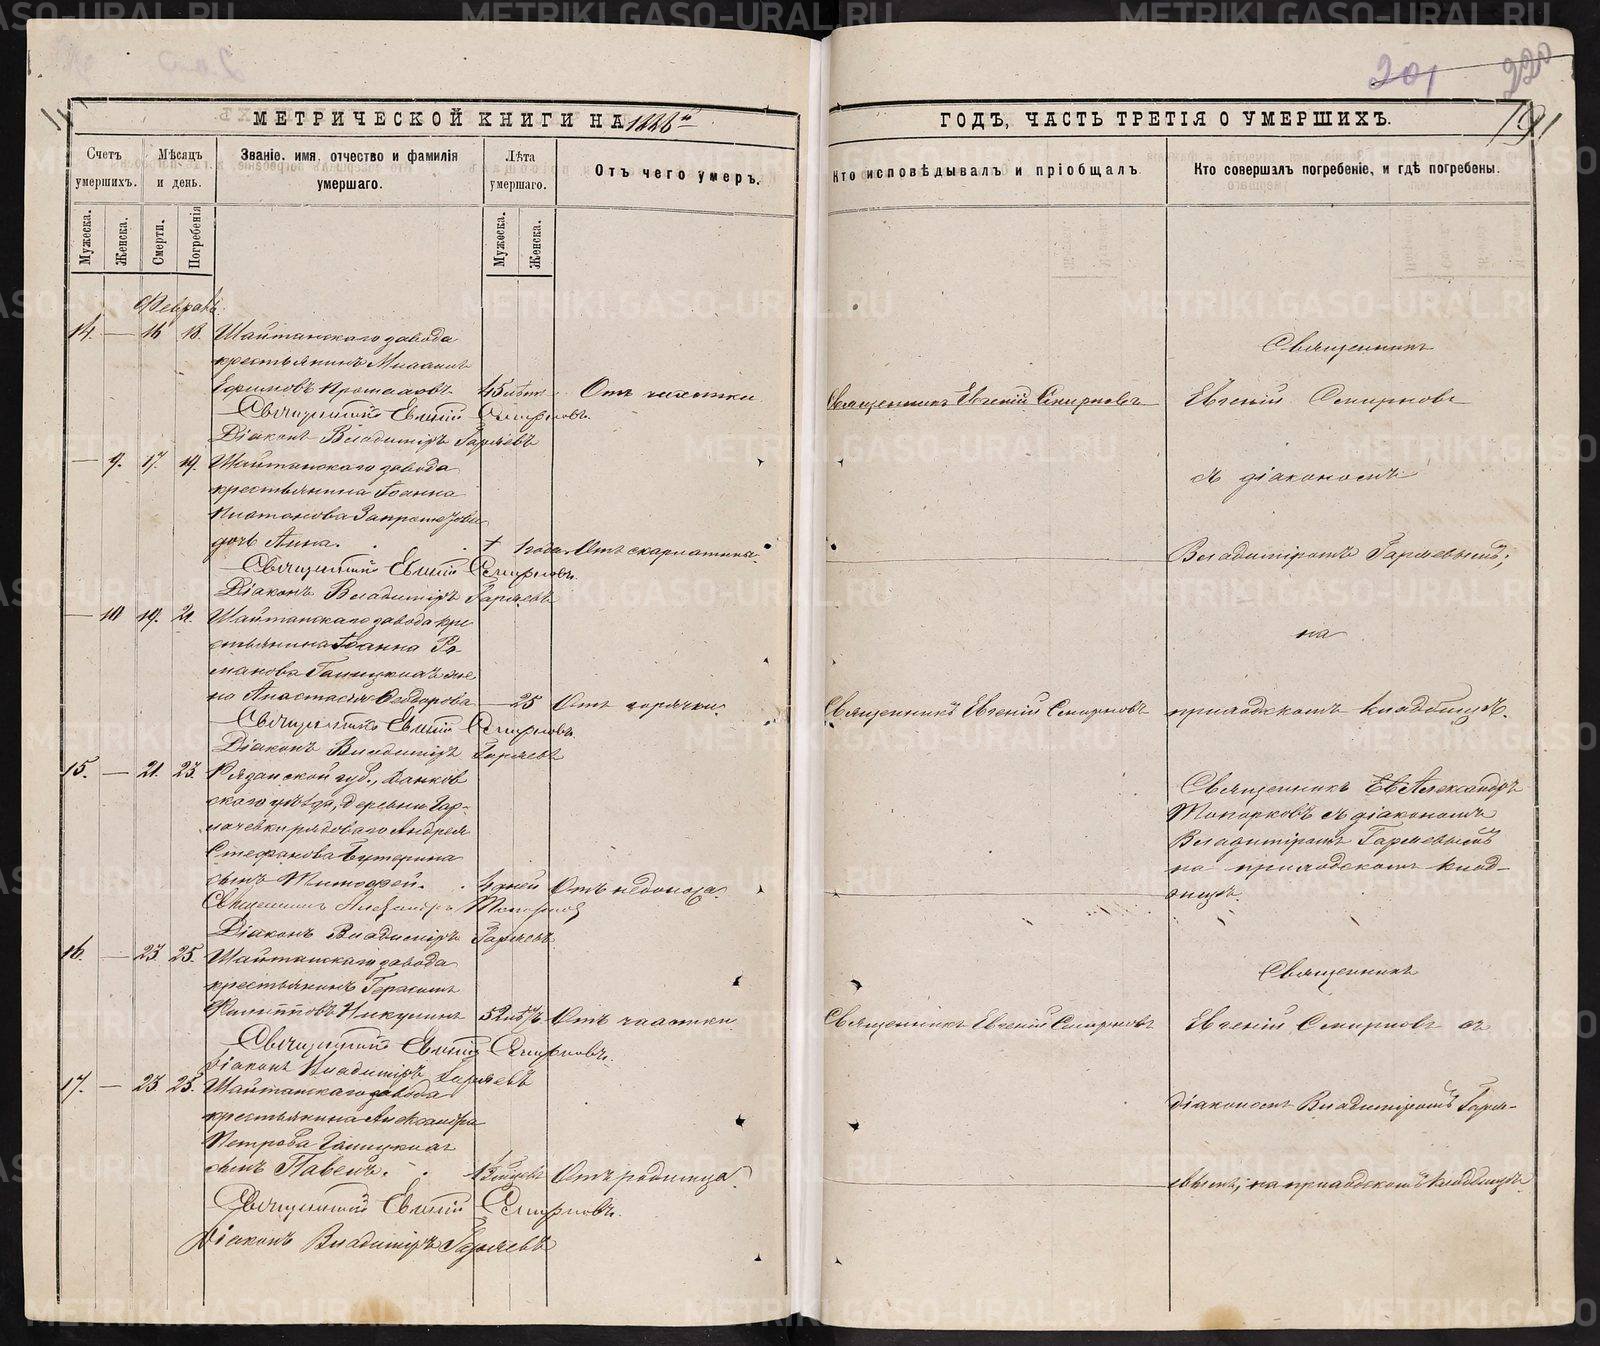 МЕТРИЧЕСКОЙ КНИГИ НА 1886й
Счетъ умершихъ.
Мѣсяцъ и день.
Званіе, имя, отчество и фамилія умершаго.
Лѣта умершаго.
Отъ чего умеръ.
Мужеска.
Женска.
Смерти.
Погребенія
Мужеска.
Женска.
Февраль
14. — 16 18. Шайтанскаго завода
крестьянинъ
Ефимовъ 45 лѣтъ Отъ чахотки
Священникъ Евгеній Смирновъ.
Діаконъ Владиміръ Гаряевъ
— 9. 17. 19. Шайтанскаго завода
крестьянина Іоанна
Платонова
дочь Анна. 1 года Отъ скарлатины
Священникъ Евгеній Смирновъ.
Діаконъ Владиміръ Гаряевъ
— 10 19. 21. Шайтанскаго завода кре
стьянина Іоанна Ро
манова Галицкихъ же
на Анастасія Ѳеодорова — 25 Отъ горячки.
Священникъ Евгеній Смирновъ.
Діаконъ Владиміръ Гаряевъ
15. — 21. 23. Рязанской губ., Данков
скаго уѣзда, деревни
рядоваго Андрея
Стефанова
сынъ Тимоѳей. 4 дней Отъ недоноса.
Священникъ Александръ Топорковъ
Діаконъ Владиміръ Гаряевъ
16. — 23. 25. Шайтанскаго завода
крестьянинъ Герасимъ
Филипповъ Никулинъ 52 лѣтъ Отъ чахотки
Священникъ Евгеній Смирновъ.
Діаконъ Владиміръ Гаряевъ
17. — 23. 25. Шайтанскаго завода
крестьянина Александра
Петрова Галицкихъ
сынъ Павелъ. Отъ родимца.
Священникъ Евгеній Смирновъ.
Діаконъ Владиміръ Гаряевъ
201
220
191
ГОДЪ, ЧАСТЬ ТРЕТІЯ О УМЕРШИХЪ.
Кто исповѣдывалъ и пріобщалъ
Кто совершалъ погребеніе, и гдѣ погребены.
Священникъ
Священникъ Евгеній Смирновъ Евгеній Смирновъ
съ діакономъ
Владиміромъ Гаряевымъ,
на
Священникъ Евгеній Смирновъ приходскомъ кладбищѣ.
Священникъ Александръ
Топорковъ съ діакономъ
Владиміромъ Гаряевымъ
на приходскомъ клад-
бищѣ.
Священникъ
Священникъ Евгеній Смирновъ Евгеній Смирновъ съ
діакономъ Владиміромъ Гаря-
евымъ, на приходскомъ кладбищѣ
METRIKI.GASO-URAL.RU